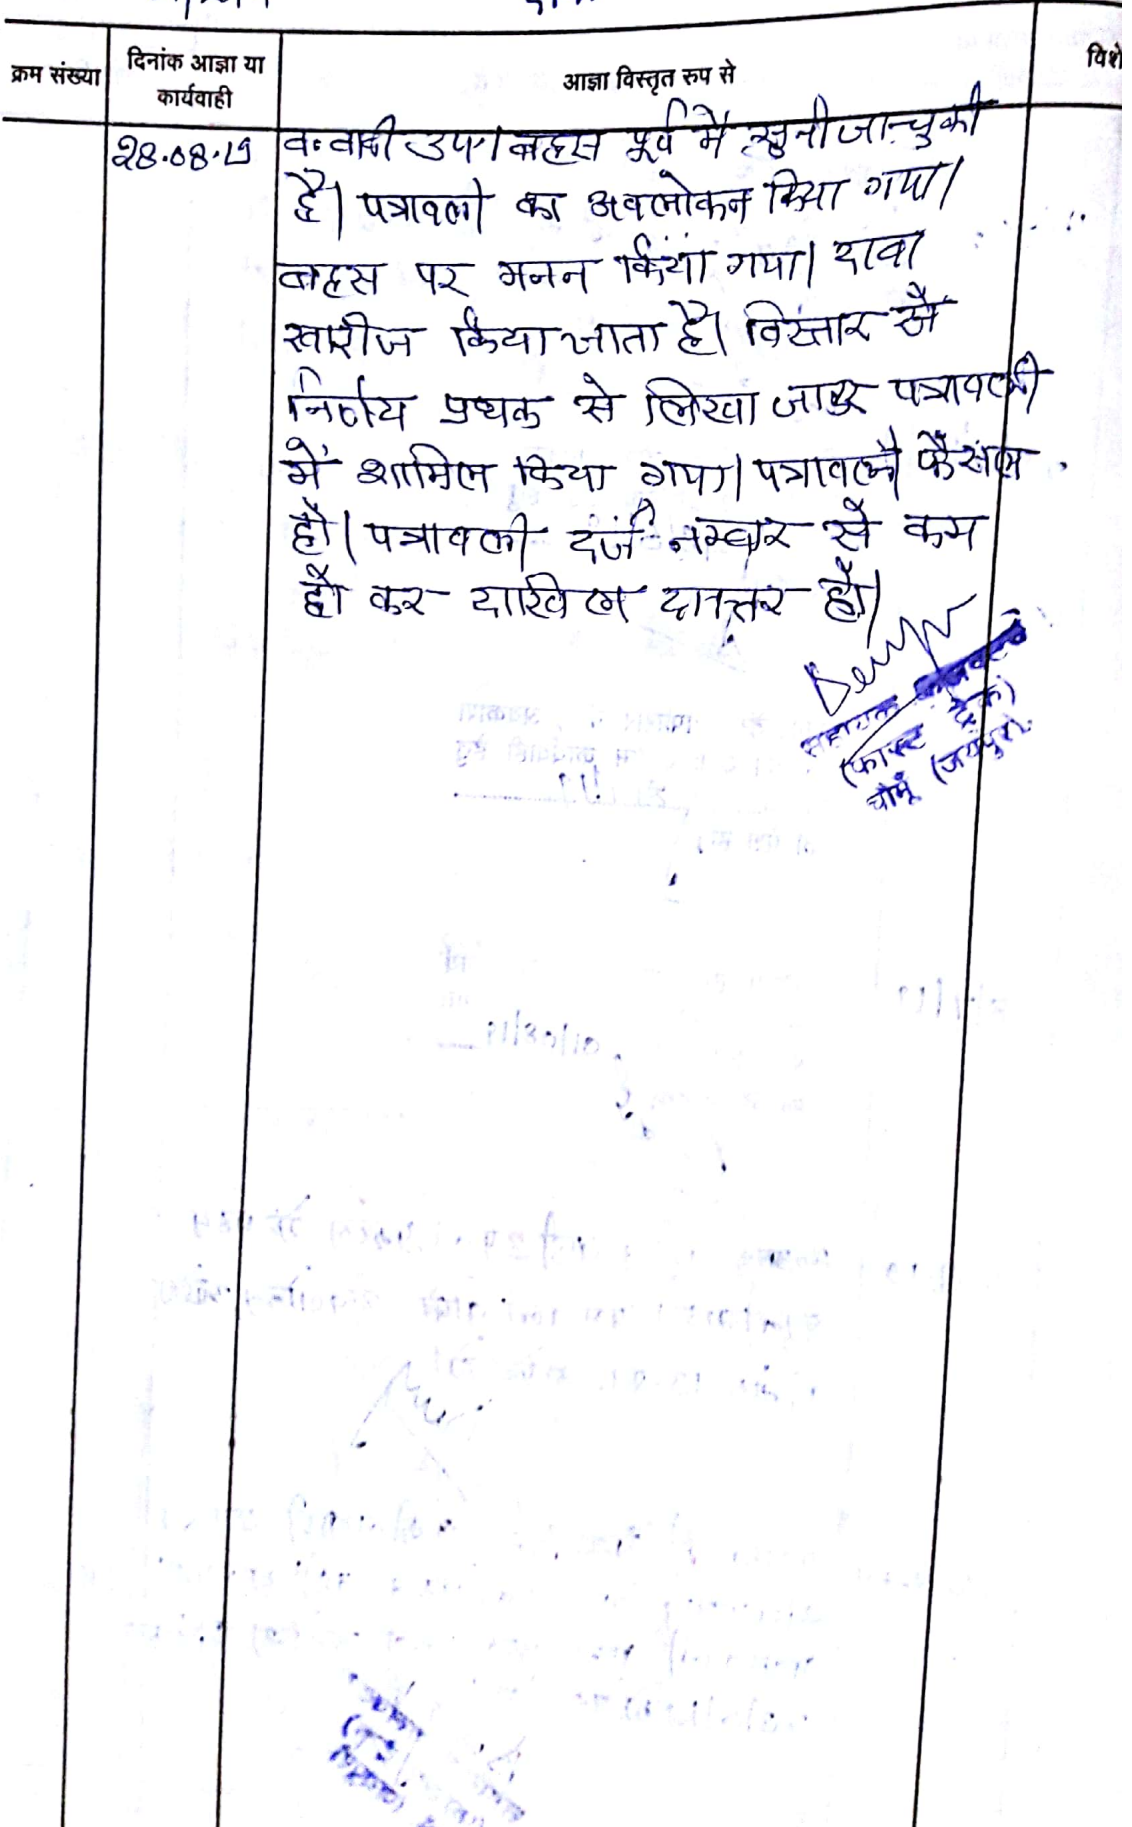 क्रम संख्या
दिनांक आज्ञा या
कार्यवाही
आज्ञा विस्तृत रुप से
विशे
28.08.19
व. वादी उप। बहस पूर्व में सुनी जा चुकी
है। पत्रावली का अवलोकन किया गया।
बहस पर मनन किया गया। दावा
खारीज किया जाता है। विस्तार से
निर्णय प्रथक से लिखा जाकर पत्रावली
में शामिल किया गया। पत्रावली फैसल
हो। पत्रावली दर्ज नम्बर से कम
हो कर दाखिल दफ्तर हो।
सहायक कलक्टर
(फास्ट ट्रेक)
चौमूं (जयपुर)